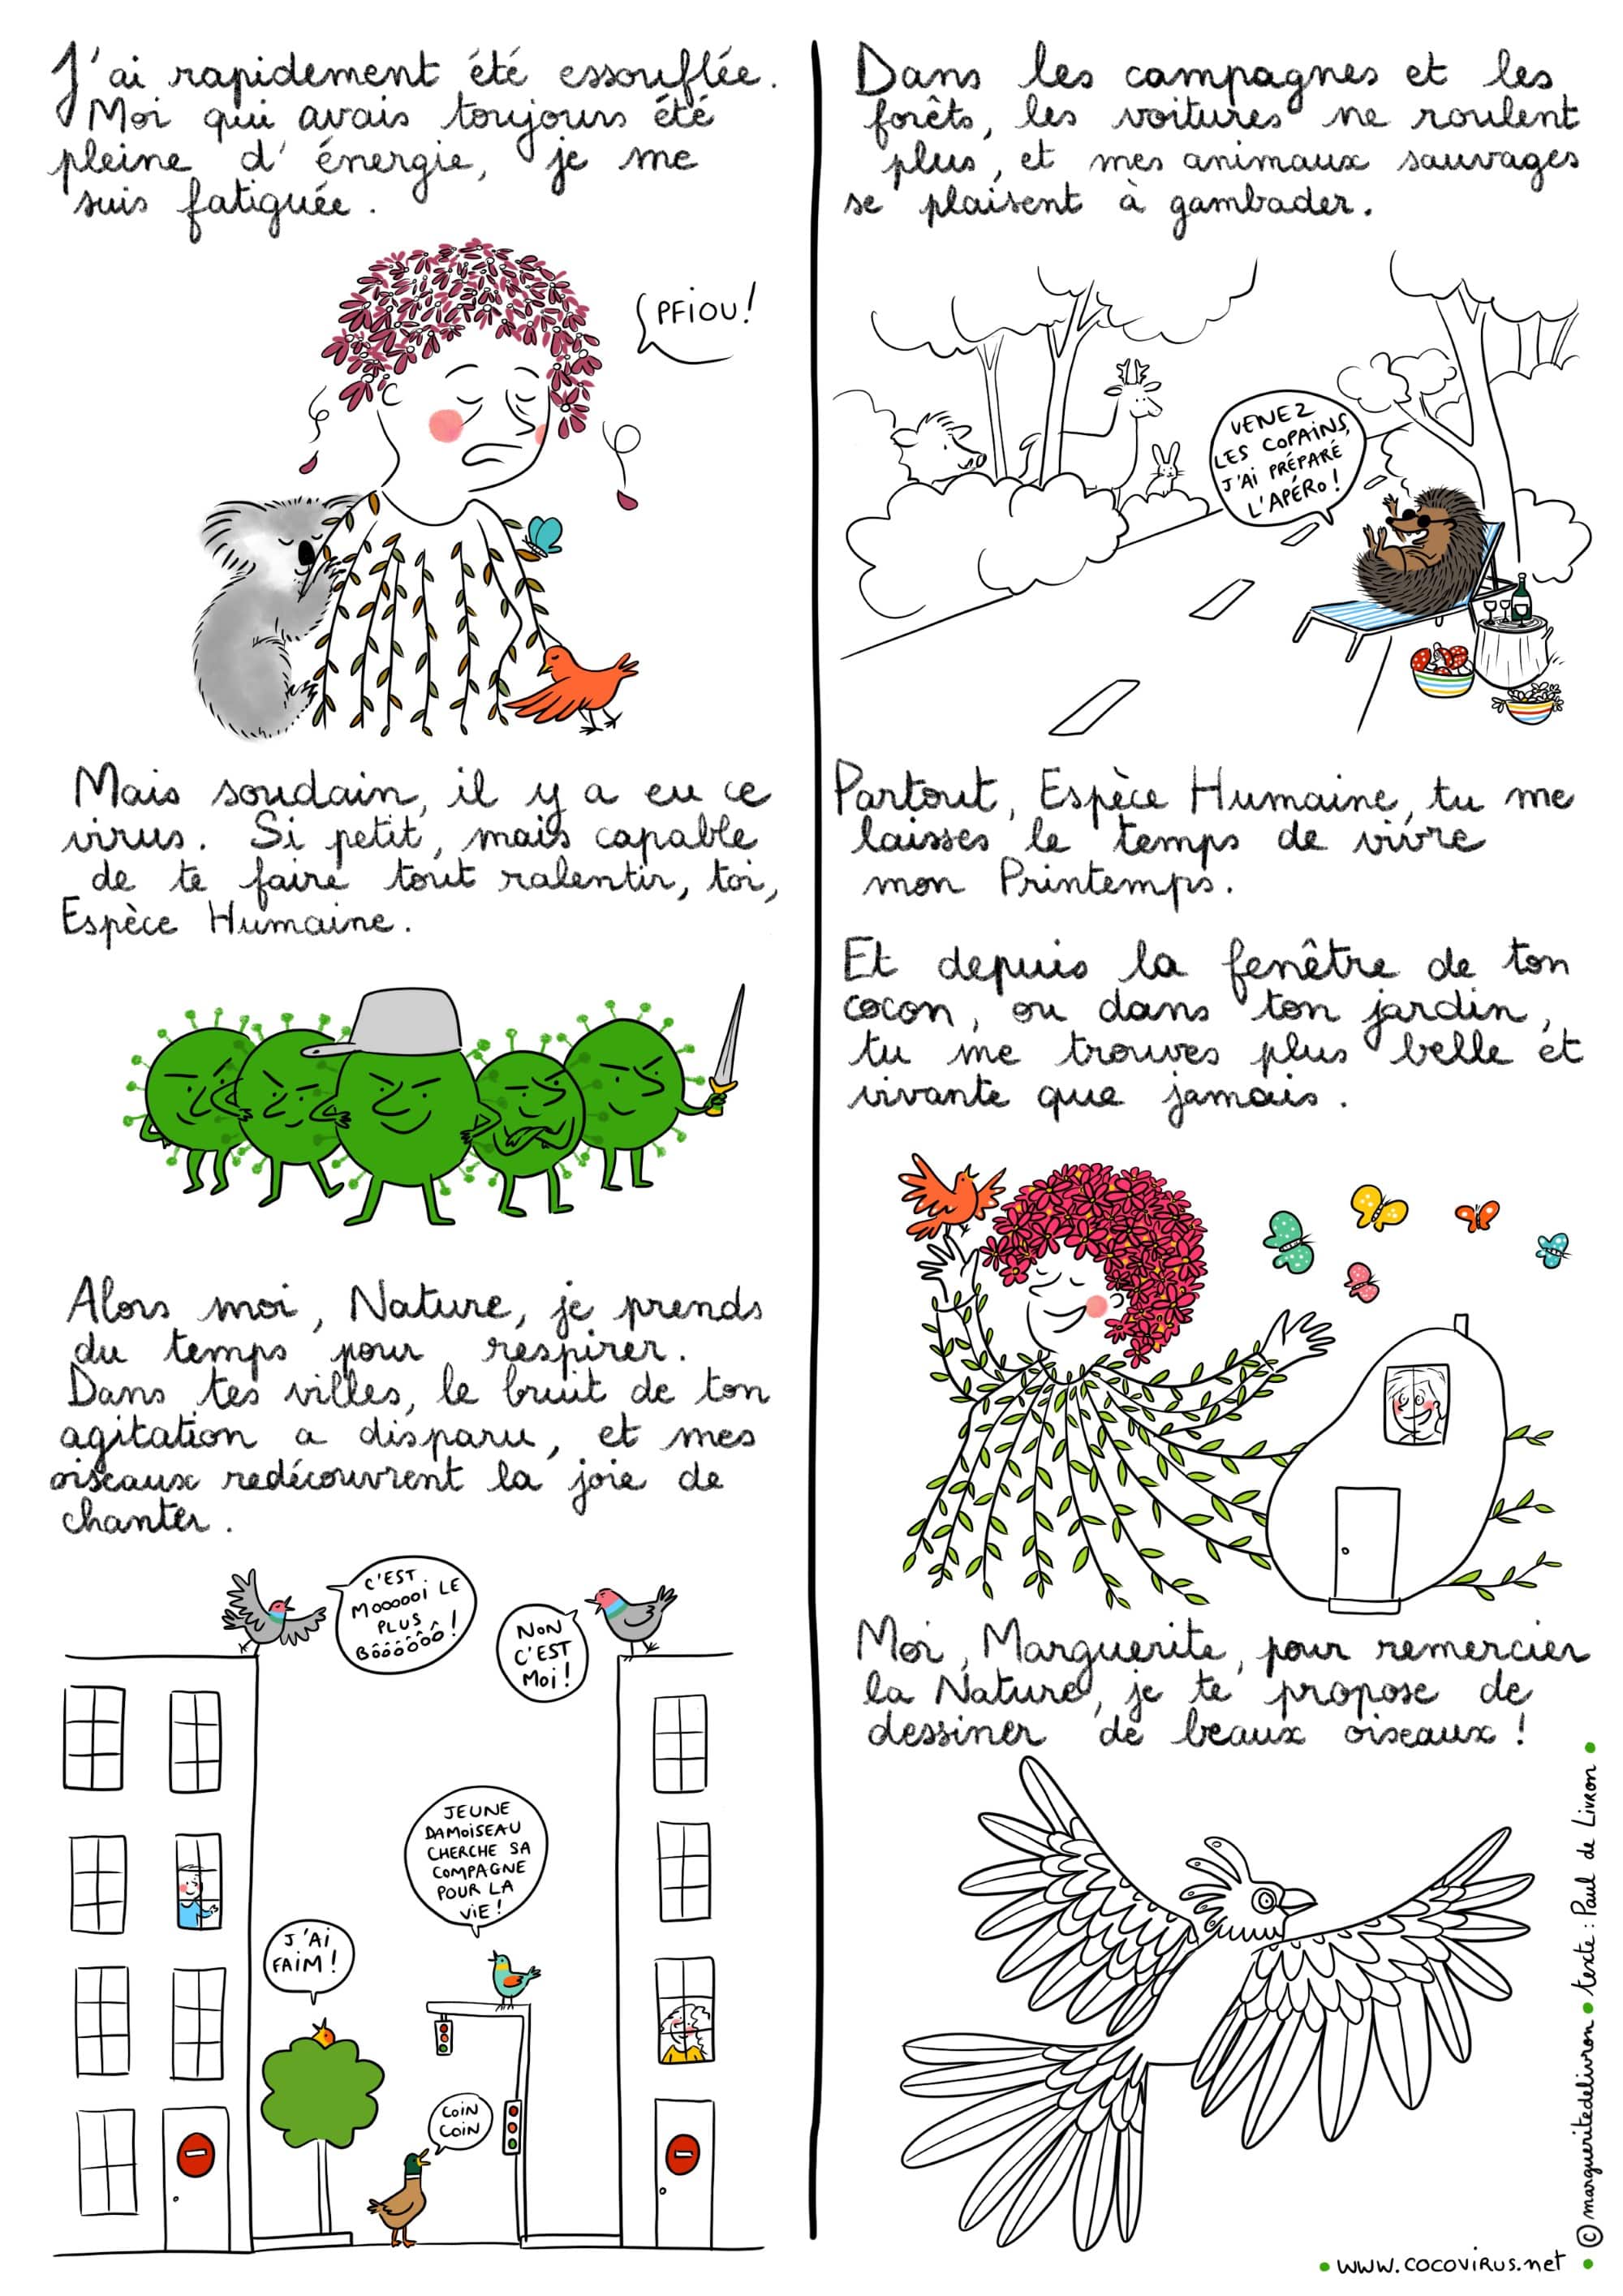 J'ai rapidement été essouflée.
Moi qui avais toujours été
pleine d'énergie, je me
suis fatiguée.
PFIOU!
Mais soudain, il y a eu ce
virus. Si petit, mais capable
de te faire tout ralentir, toi,
Espèce Humaine.
Alors moi, Nature, je prends
du temps pour respirer.
Dans tes villes, le bruit de ton
agitation a disparu, et mes
oiseaux redécouvrent la joie de
chanter.
C'EST
MOOOOOI LE
PLUS
BÔÔÔÔÔÔ!
NON
C'EST
MOI!
JEUNE
DAMOISEAU
CHERCHE SA
COMPAGNE
POUR LA
VIE!
J'AI
FAIM!
COIN
COIN
Dans les campagnes et les
forêts, les voitures ne roulent
plus, et mes animaux sauvages
se plaisent à gambader.
VENEZ
LES COPAINS,
J'AI PRÉPARÉ
L'APÉRO!
Partout, Espèce Humaine, tu me
laisses le temps de vivre
mon Printemps.
Et depuis la fenêtre de ton
cocon, ou dans ton jardin,
tu me trouves plus belle et
vivante que jamais.
Moi, Marguerite, pour remercier
la Nature, je te propose de
dessiner de beaux oiseaux!
© margueritedelivron • texte: Paul de Livron •
• www.cocovirus.net •